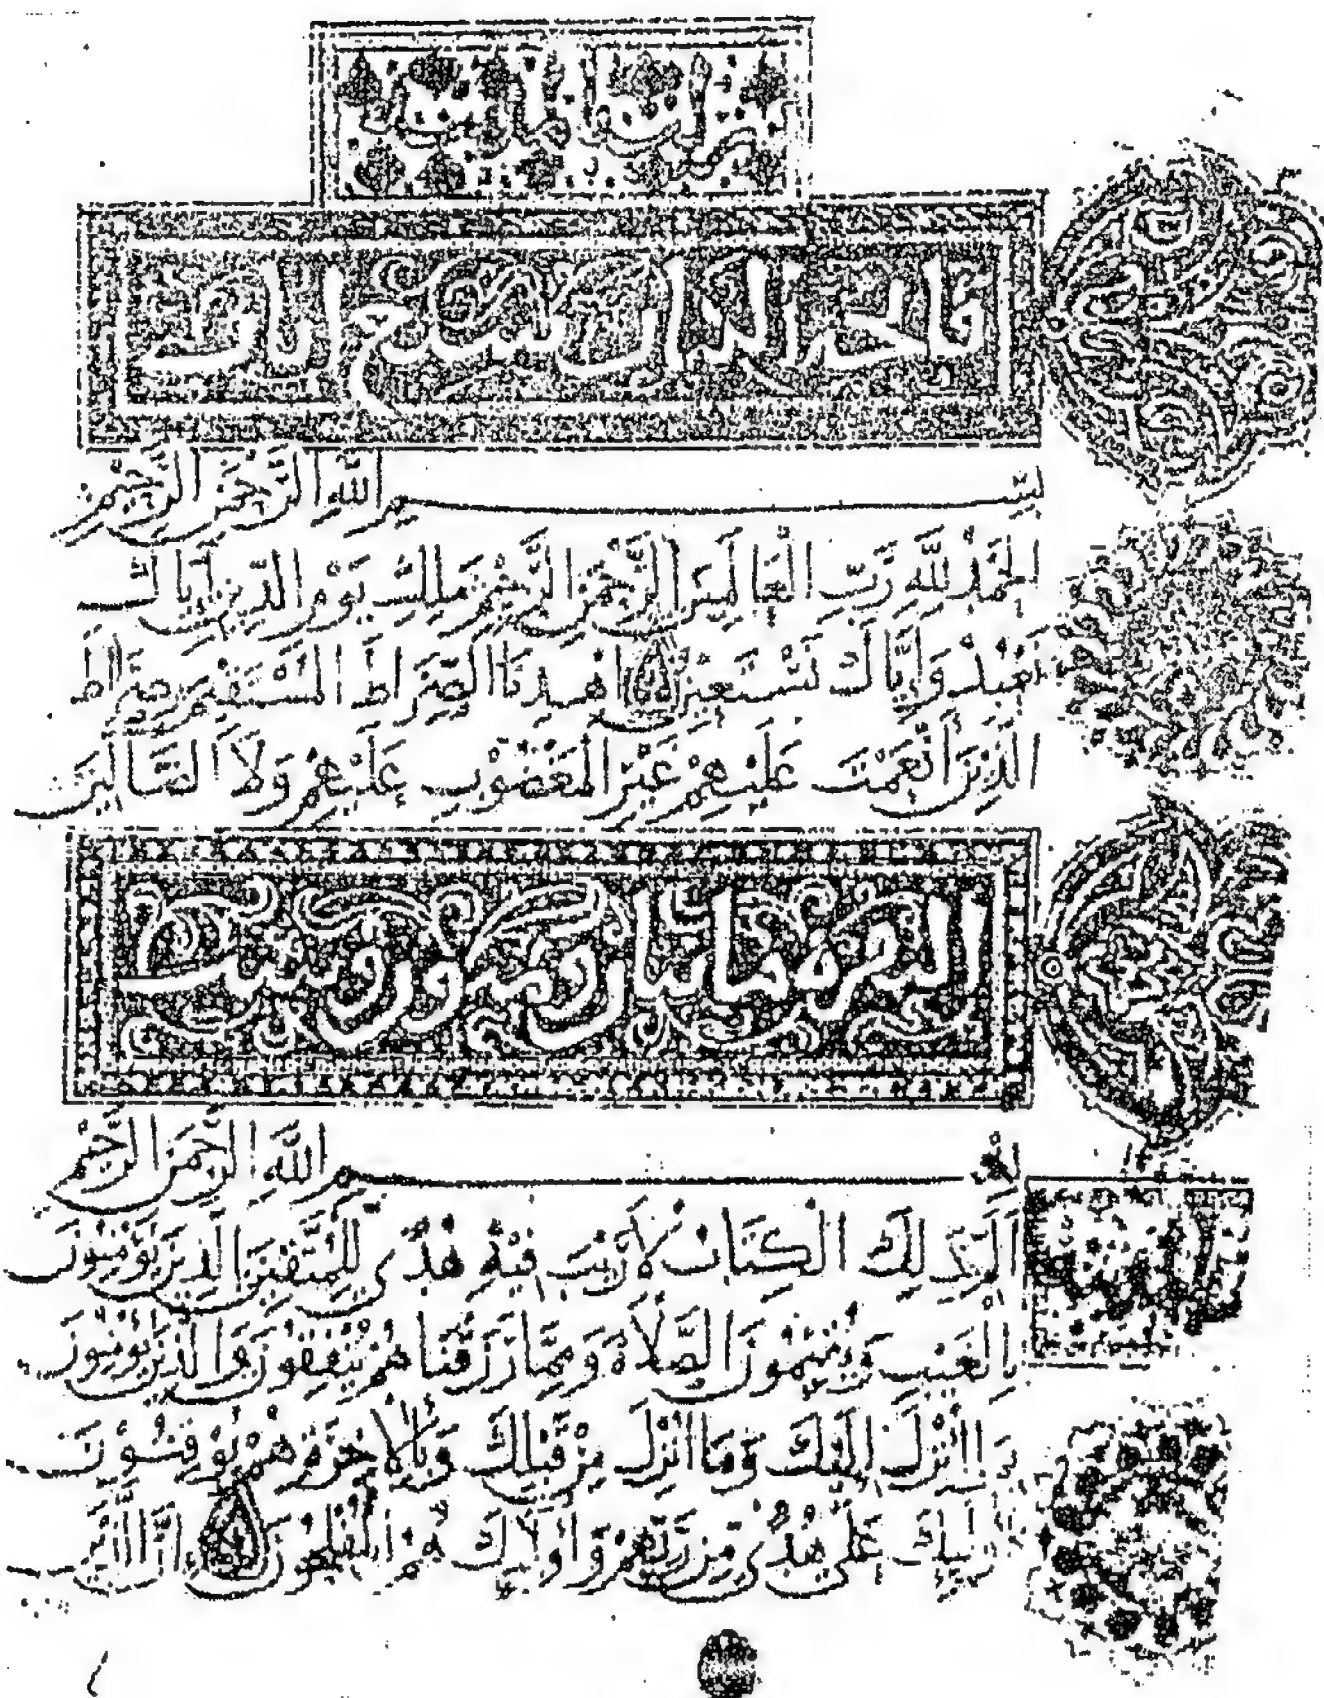 فاتحة الكتاب سبع آيات
بسم الله الرحمن الرحيم
الحمد لله رب العالمين الرحمن الرحيم ملك يوم الدين إياك
نعبد وإياك نستعين اهدنا الصراط المستقيم صراط
الذين أنعمت عليهم غير المغضوب عليهم ولا الضالين
البقرة مائتا و
بسم الله الرحمن الرحيم
الم ذلك الكتاب لا ريب فيه هدى للمتقين الذين يؤمنون
بالغيب ويقيمون الصلاة ومما رزقناهم ينفقون والذين يؤمنون
بما أنزل إليك وما أنزل من قبلك وبالآخرة هم يوقنون
أولئك على هدى من ربهم وأولئك هم المفلحون إن الذين